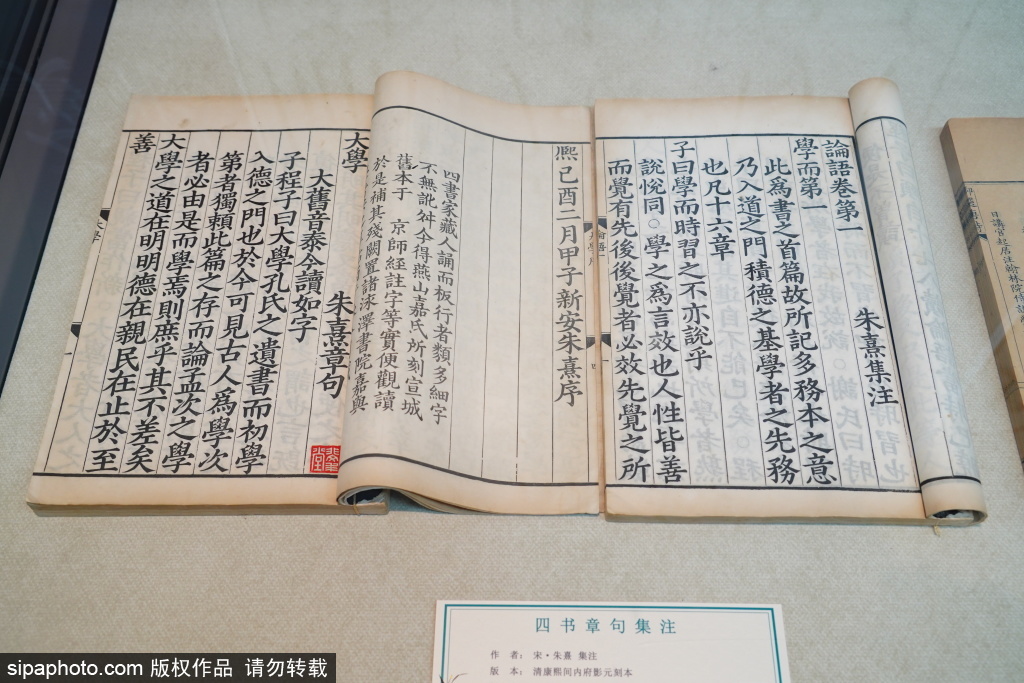 論語卷第一
朱熹集注
學而第一
此為書之首篇故所記多務本之意
乃入道之門積德之基學者之先務
也凡十六章
子曰學而時習之不亦說乎
說悅同○學之為言效也人性皆善
而覺有先後後覺者必效先覺之所
熙己酉二月甲子新安朱熹序
四書家藏人誦而板行者類多細字
不無訛舛今得燕山嘉氏所刻宣城
舊本于 京師經註字等實便觀讀
於是補其殘闕置諸洙澤書院嘉與
大學
朱熹章句
大舊音泰今讀如字
子程子曰大學孔氏之遺書而初學
入德之門也於今可見古人為學次
第者獨賴此篇之存而論孟次之學
者必由是而學焉則庶乎其不差矣
大學之道在明明德在親民在止於至
善
大學
四书章句集注
作 者: 宋·朱熹 集注
版 本: 清康熙间内府影元刻本
日講官起居注翰林院
sipaphoto.com 版权作品 请勿转载